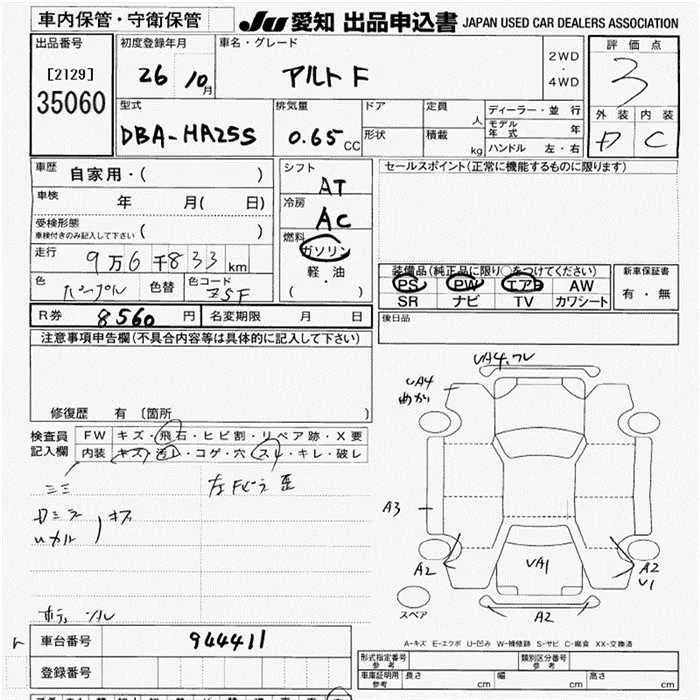 車内保管・守衛保管
JU 愛知 出品申込書 JAPAN USED CAR DEALERS ASSOCIATION
出品番号
[2129]
35060
初度登録年月
26 10月
車名・グレード
アルト F
2WD
・
4WD
評価点
3
外装 内装
D C
型式
DBA-HA25S
排気量
0.65 CC
ドア
形状
定員 人
積載 kg
ディーラー・並行
モデル年式 年
ハンドル 左・右
車歴
自家用・( )
車検
年 月( 日)
受検形態
車検付きのみ記入して下さい ( )
走行
9万6千833km
色
パープル
色替
色コード
Z5F
シフト
AT
冷房
AC
燃料
ガソリン
軽・油
( )
セールスポイント(正常に機能するものに限ります)
装備品(純正品に限り○をつけてください)
PS PW エアB AW
SR ナビ TV カワシート
新車保証書
有・無
R券 8560円 名変期限 月 日
後日品
注意事項申告欄(不具合内容等は具体的に記入して下さい)
修復歴 有 〔箇所 〕
検査員
記入欄
FW キズ・飛石・ヒビ割・リペア跡・X要
内装 キズ・汚レ・コゲ・穴・スレ・キレ・破レ
左Fピラ歪
キズ
UA4
曲がり
UA4.ワレ
A3
A2
UA1
A2
U1
A2
スペア
A-キズ E-エクボ U-凹み W-補修跡 S-サビ C-腐食 XX-交換済
車台番号 944411
登録番号
形式指定番号
参考
類別区分番号
参考
車庫証明用
参考
長さ cm 幅 cm 高さ cm